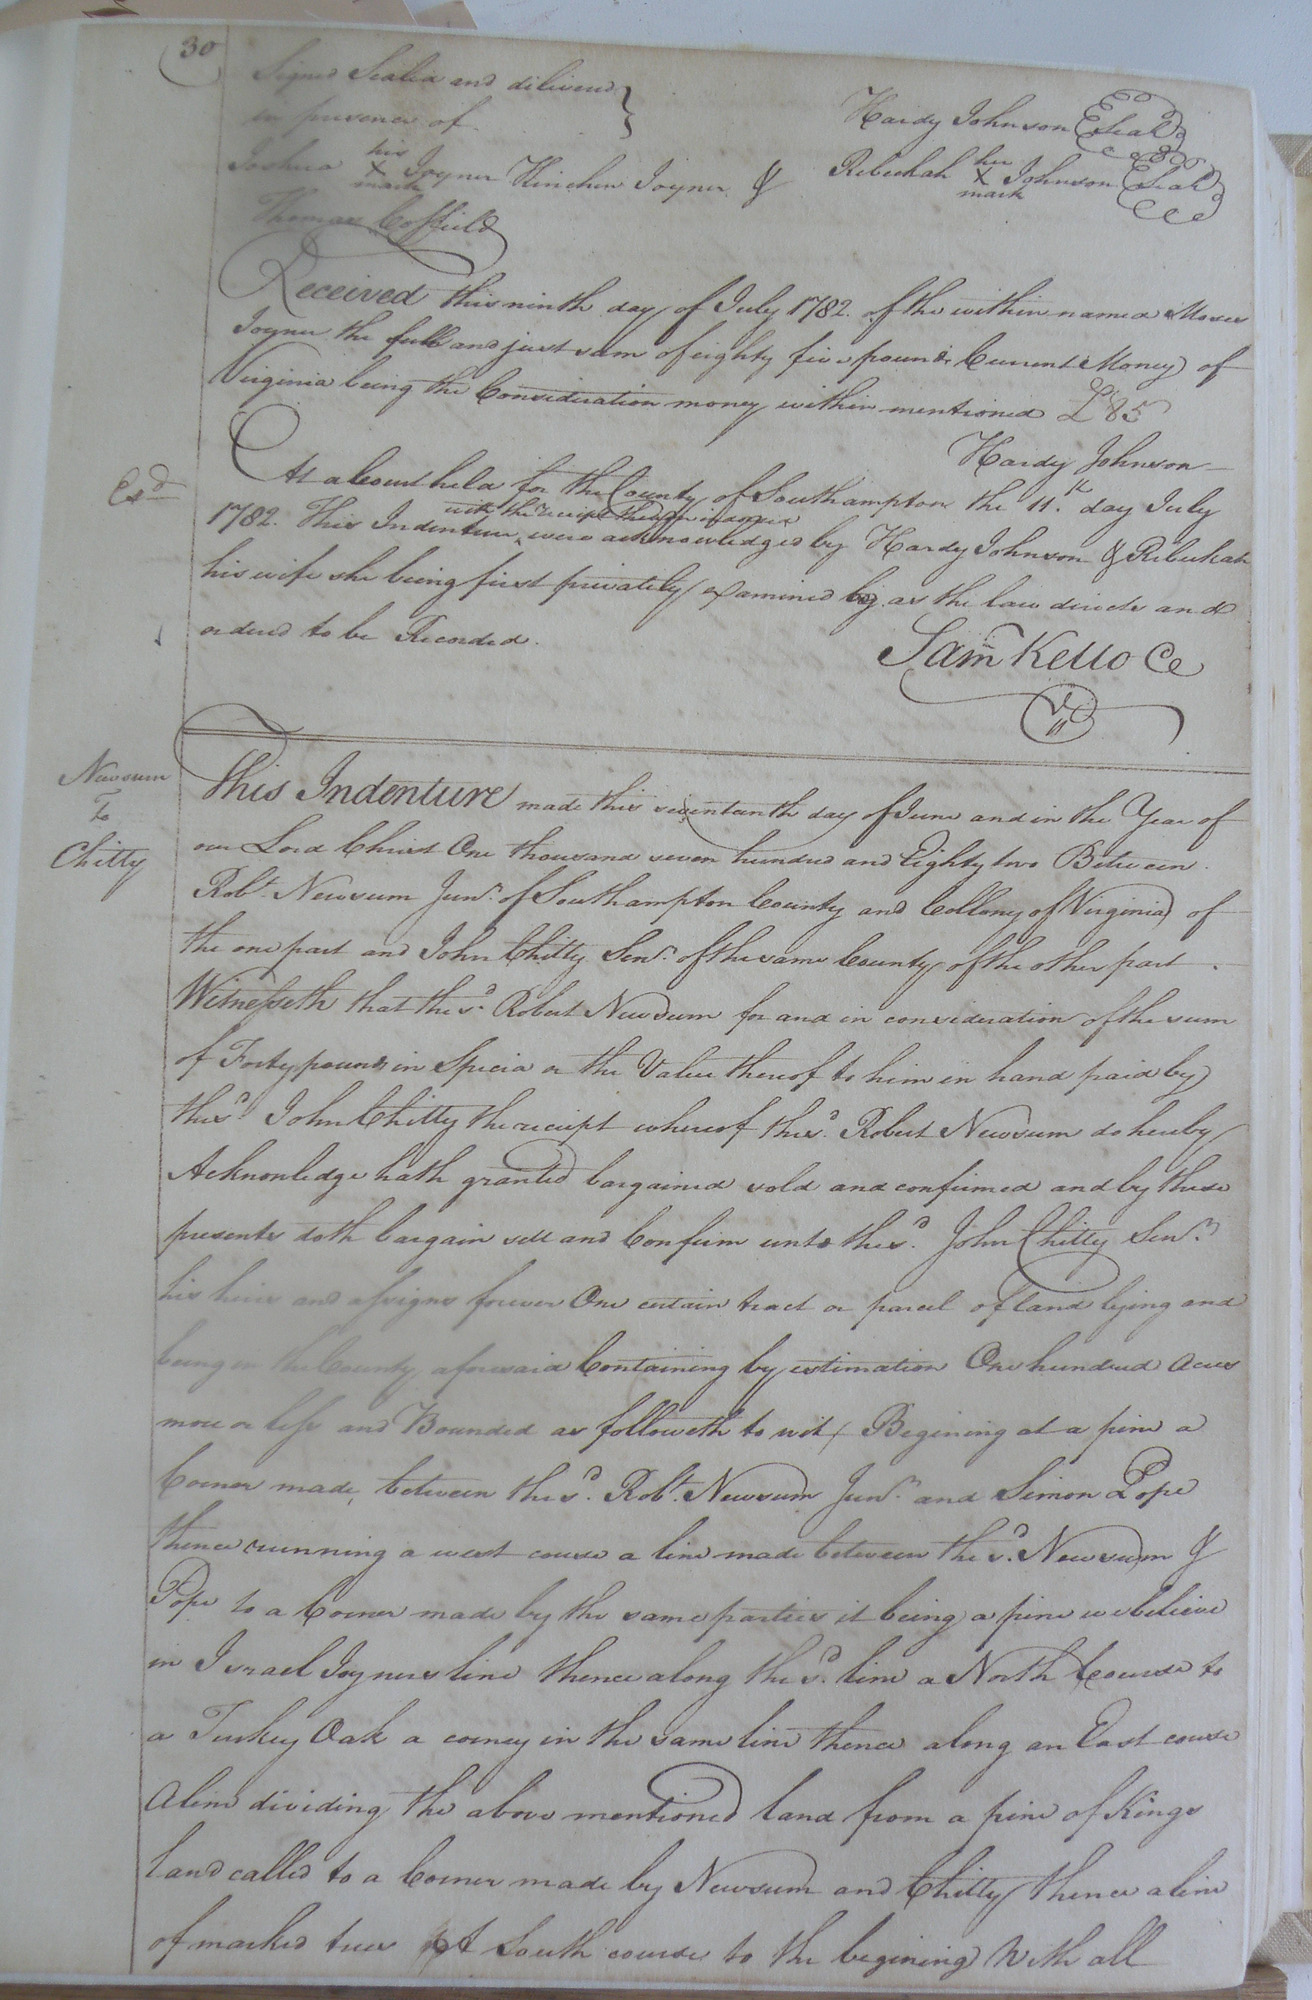 30
Signed Sealed and delivered }
in presence of
Hardy Johnson (Seal)
his
Joshua X Joyner Kinchen Joyner &
mark
her
Rebeckah X Johnson (Seal)
mark
Thomas Coffield
Received this ninth day of July 1782. of the within named Moses
Joyner the full and just sum of eighty five pounds Current Money of
Virginia being the Consideration money within mentioned £85
Hardy Johnson
Exd
At a Court held for the County of Southampton the 11.th day July
with the receipt thereon
1782. This Indenture were acknowledged by Hardy Johnson & Rebeckah
his wife she being first privately examined as the law directs and
ordered to be Recorded.
Sam Kello Cc
Newsum
To
Chitty
This Indenture made this seventeenth day of June and in the Year of
our Lord Christ One thousand seven hundred and Eighty two Between
Robt. Newsum Junr. of Southampton County and Collony of Virginia of
the one part and John Chitty Senr. of the same County of the other part.
Witnesseth that the sd. Robert Newsum for and in consideration of the sum
of Forty pounds in Specia or the Value thereof to him in hand paid by
the sd. John Chitty the receipt whereof the sd. Robert Newsum do hereby
Acknowledge hath granted bargained sold and confirmed and by these
presents doth bargain sell and Confirm unto the sd. John Chitty Senr.
his heirs and assigns forever One certain tract or parcel of land lying and
being in the County aforesaid Containing by estimation One hundred Acres
more or less and Bounded as followeth to wit, Begining at a pine a
Corner made, between the sd. Robt. Newsum Junr. and Simon Pope
thence running a west course a line made between the sd. Newsum &
Pope to a Corner made by the same parties it being a pine we believe
in Israel Joyners line thence along the sd. line a North Course to
a Turkey Oak a corney in the same line thence along an East course
A line dividing the above mentioned land from a pine of Kings
land called to a Corner made by Newsum and Chitty thence a line
of marked trees A South course to the begining With all